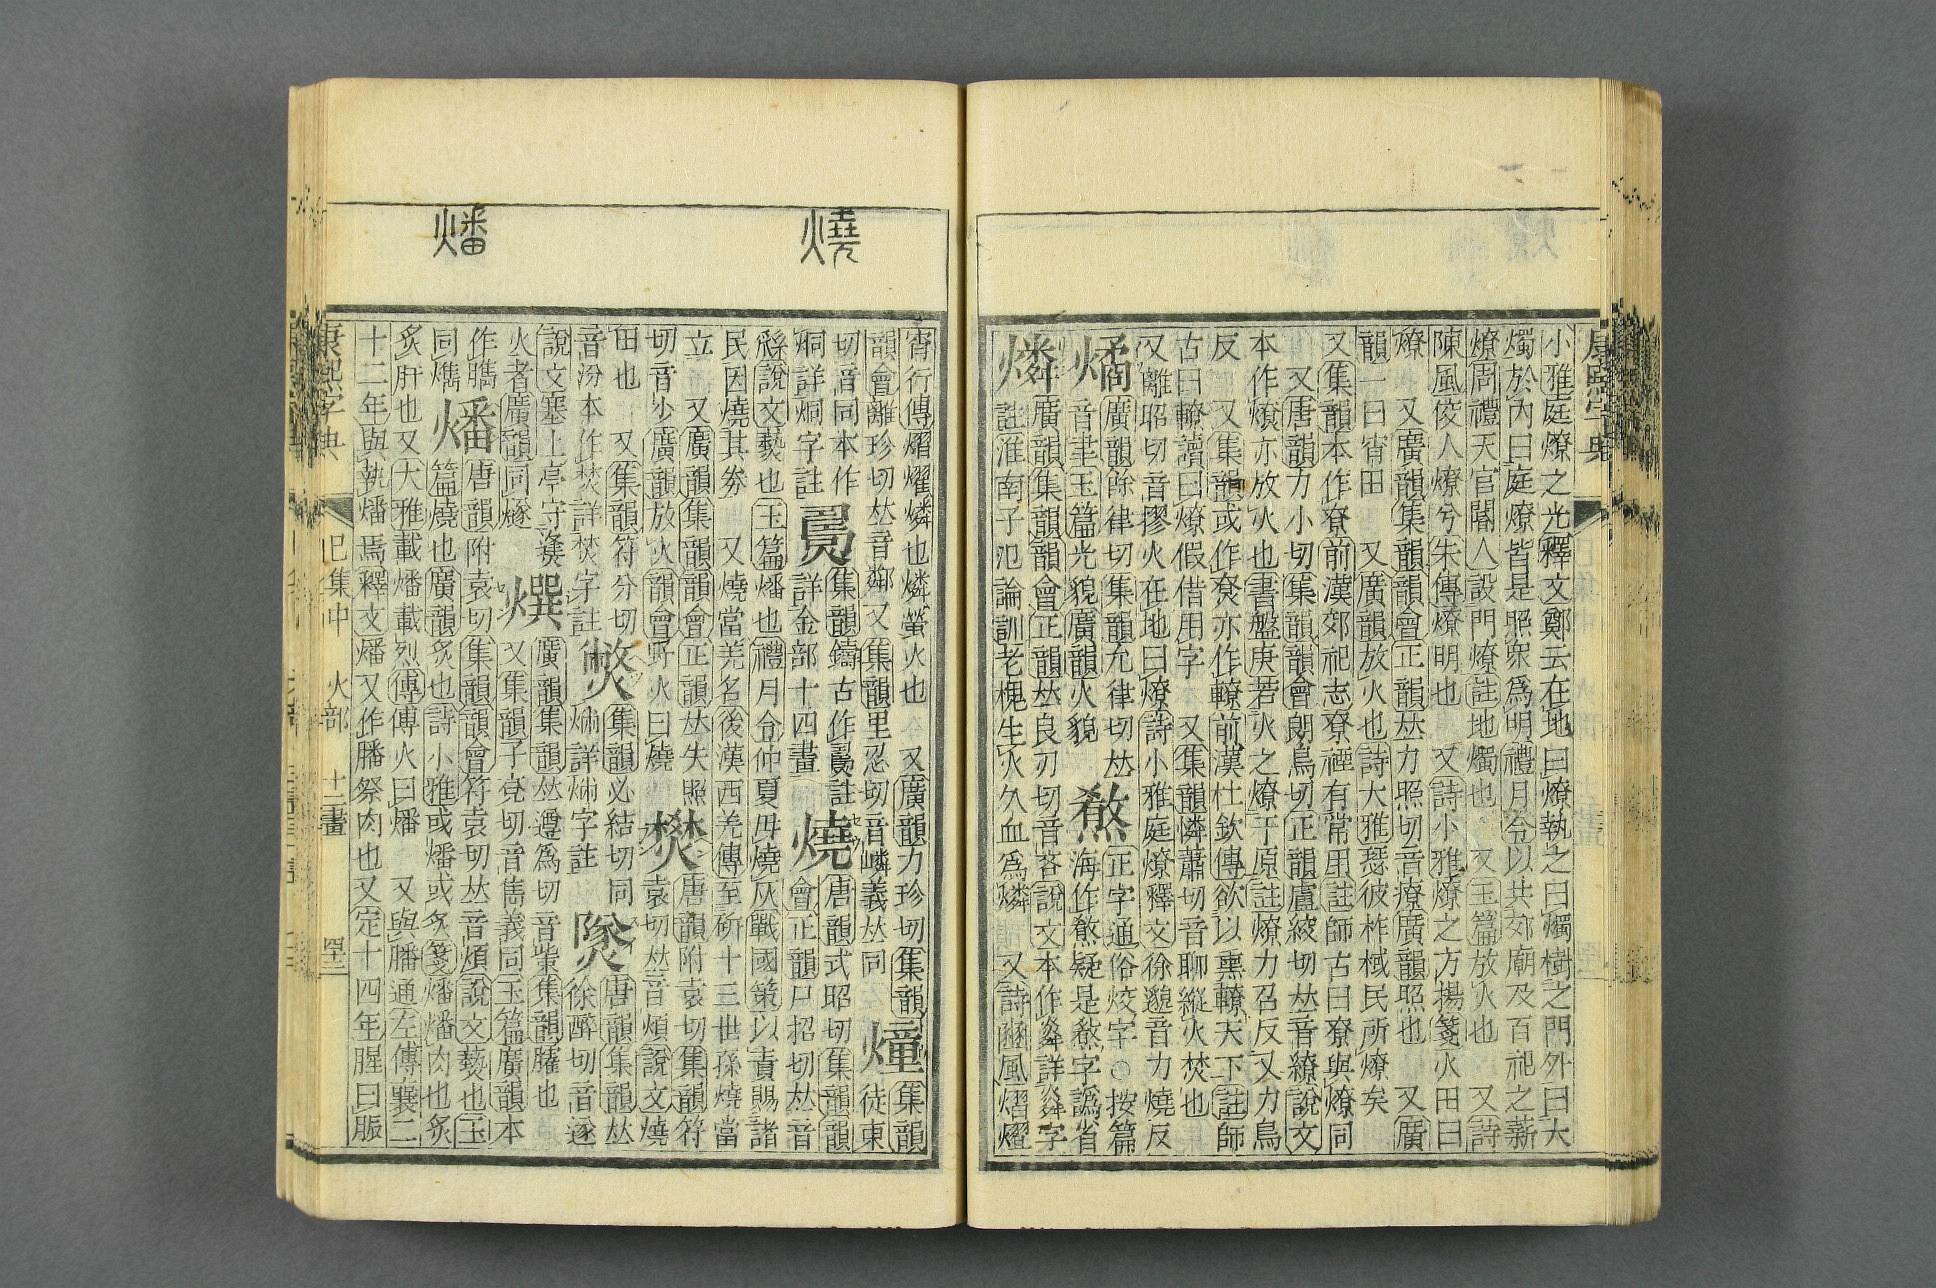 康熙字典
小雅庭燎之光釋文鄭云在地曰燎執之曰燭樹之門外曰大
燭於內曰庭燎皆是照衆爲明禮月令以共郊廟及百祀之薪
燎周禮天官閽人設門燎註地燭也 又玉篇放火也 又詩
陳風佼人燎兮朱傳燎明也 又詩小雅燎之方揚箋火田曰
燎 又廣韻集韻韻會正韻𠀤力照切音療廣韻照也 又廣
韻一曰宵田 又廣韻放火也詩大雅瑟彼柞棫民所燎矣
又集韻本作尞前漢郊祀志尞禋有常用註師古曰尞與燎同
又唐韻力小切集韻韻會朗鳥切正韻盧皎切𠀤音繚說文
本作燎亦放火也書盤庚若火之燎于原註燎力召反又力鳥
反 又集韻或作尞亦作轑前漢杜欽傳欲以熏轑天下註師
古曰轑讀曰燎假借用字 又集韻憐蕭切音聊縱火焚也
又離昭切音摎火在地曰燎詩小雅庭燎釋文徐邈音力燒反
燏 廣韻餘律切集韻允律切𠀤
音聿玉篇光貌廣韻火貌
㷱 正字通俗烄字○按篇
海作㷱疑是㷱字譌省
燐 廣韻集韻韻會正韻𠀤良刃切音吝說文本作粦詳粦字
註淮南子氾論訓老槐生火久血爲燐 又詩豳風熠燿
燒
燔
宵行傳熠燿燐也燐螢火也 又廣韻力珍切集韻
韻會離珍切𠀤音鄰 又集韻里忍切音嶙義𠀤同
燑 集韻
徒東
切音同本作
烔詳烔字註
集韻鑄古作䥉註
詳金部十四畫
燒 唐韻式昭切集韻韻
會正韻尸招切𠀤音
繇說文爇也玉篇燔也禮月令仲夏毋燒灰戰國策以責賜諸
民因燒其券 又燒當羌名後漢西羌傳至研十三世孫燒當
立 又廣韻集韻韻會正韻𠀤失照
切音少廣韻放火韻會野火曰燒
燓 唐韻附袁切集韻符
袁切𠀤音煩說文燒
田也 又集韻符分切
音汾本作焚詳焚字註
集韻必結切同
唐韻集韻𠀤
徐醉切音遂
說文塞上亭守㷭
火者廣韻同燧
㷷 廣韻集韻𠀤遵爲切音𡺾集韻臛也
又集韻子兗切音雋義同玉篇廣韻本
作臇集韻
同㷷
燔 唐韻附袁切集韻韻會符袁切𠀤音煩說文爇也玉
篇燒也廣韻炙也詩小雅或燔或炙箋燔燔肉也炙
炙肝也又大雅載燔載烈傳傅火曰燔 又與膰通左傳襄二
十二年與執燔焉釋文燔又作膰祭肉也又定十四年腥曰脤
康熙字典 巳集中 火部 十二畫